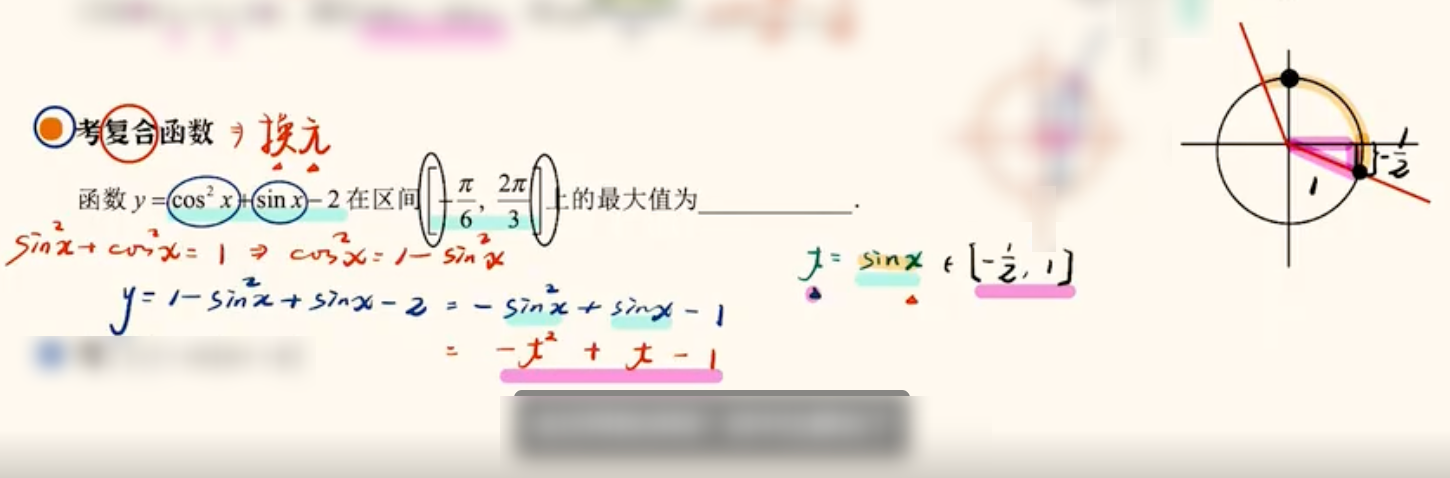 考复合函数 ⇒ 换元
函数 y = cos² x + sin x − 2 在区间 [−π/6, 2π/3] 上的最大值为____________.
sin²x + cos²x = 1 ⇒ cos²x = 1 − sin²x
t = sin x ∈ [−1/2, 1]
y = 1 − sin²x + sin x − 2 = − sin²x + sin x − 1
= − t² + t − 1
} −1/2
1